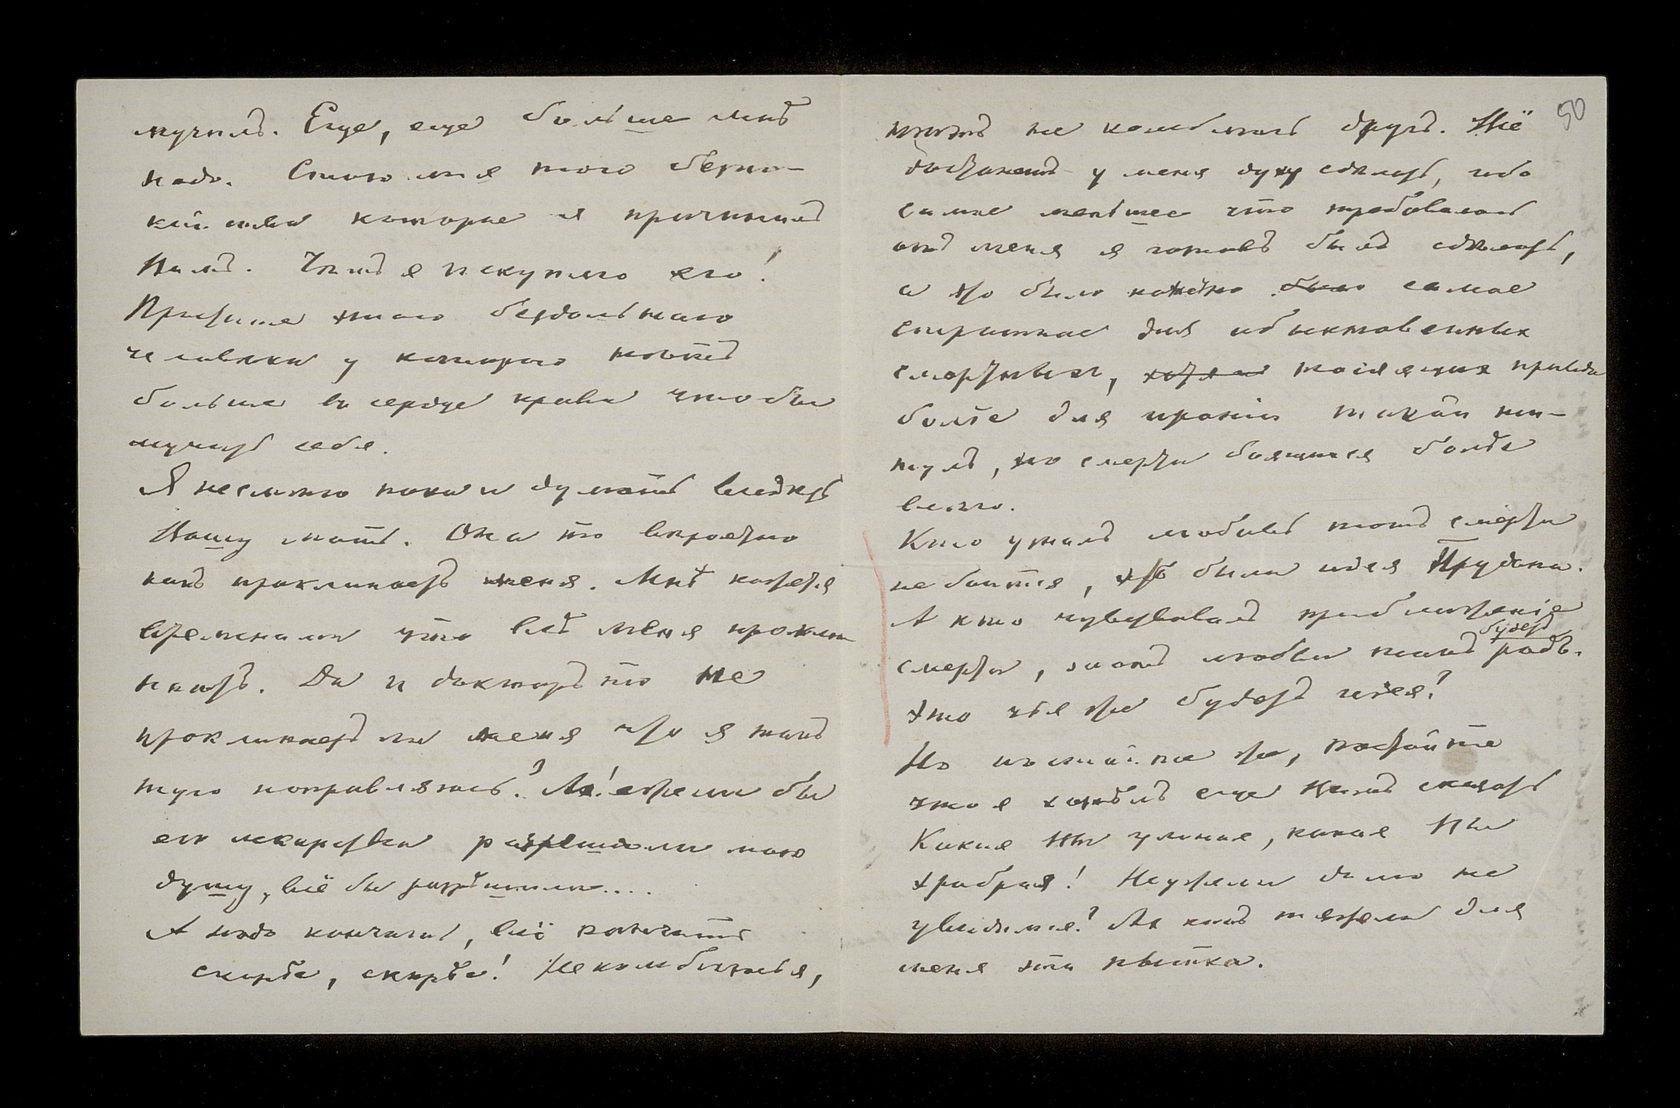 мучилъ. Еще, еще больше мнѣ
надо. Стою ли я того
которые я причинилъ
Вамъ. Чѣмъ я искуплю его!
Простите этого бездольнаго
человѣка у котораго нѣтъ
больше въ сердце крови чтобы
мучить себя.
Я несмѣю пока и думать видеть
Вашу мать. Она то вѣроятно
какъ проклинаетъ меня. Мнѣ кажется
временами что всѣ меня прокли-
наютъ. Да и докторъ то не
проклинаетъ ли меня что я такъ
туго поправляюсь? Ахъ! ежели бы
его лекарства разрешали мою
душу, всё бы разрѣшили....
А надо кончать, всё кончать
скорѣе, скорѣе! Не колебаться,
50
только не колебаться другъ. Не
достанетъ у меня духу сдѣлать, ибо
самое меньшее что требовалось
отъ меня я готовъ былъ сдѣлать,
а это было конечно было самое
страшное для обыкновенныхъ
смертныхъ, хотя и носящихъ правда
болѣе для ироніи такой ти-
тулъ, но смерти боящихся болѣе
всего.
Кто узналъ любовь тотъ смерти
не боится, это была идея Прудона.
А кто чувствовалъ приближеніе
смерти, знать любви такъ будетъ радъ.
Это чья же будетъ идея?
Но постойте же, постойте
что я хотѣлъ еще Вамъ сказать
Какая Вы умная, какая Вы
храбрая! Неужели долго не
увидимся? Ахъ какъ тяжела для
меня эта пытка.